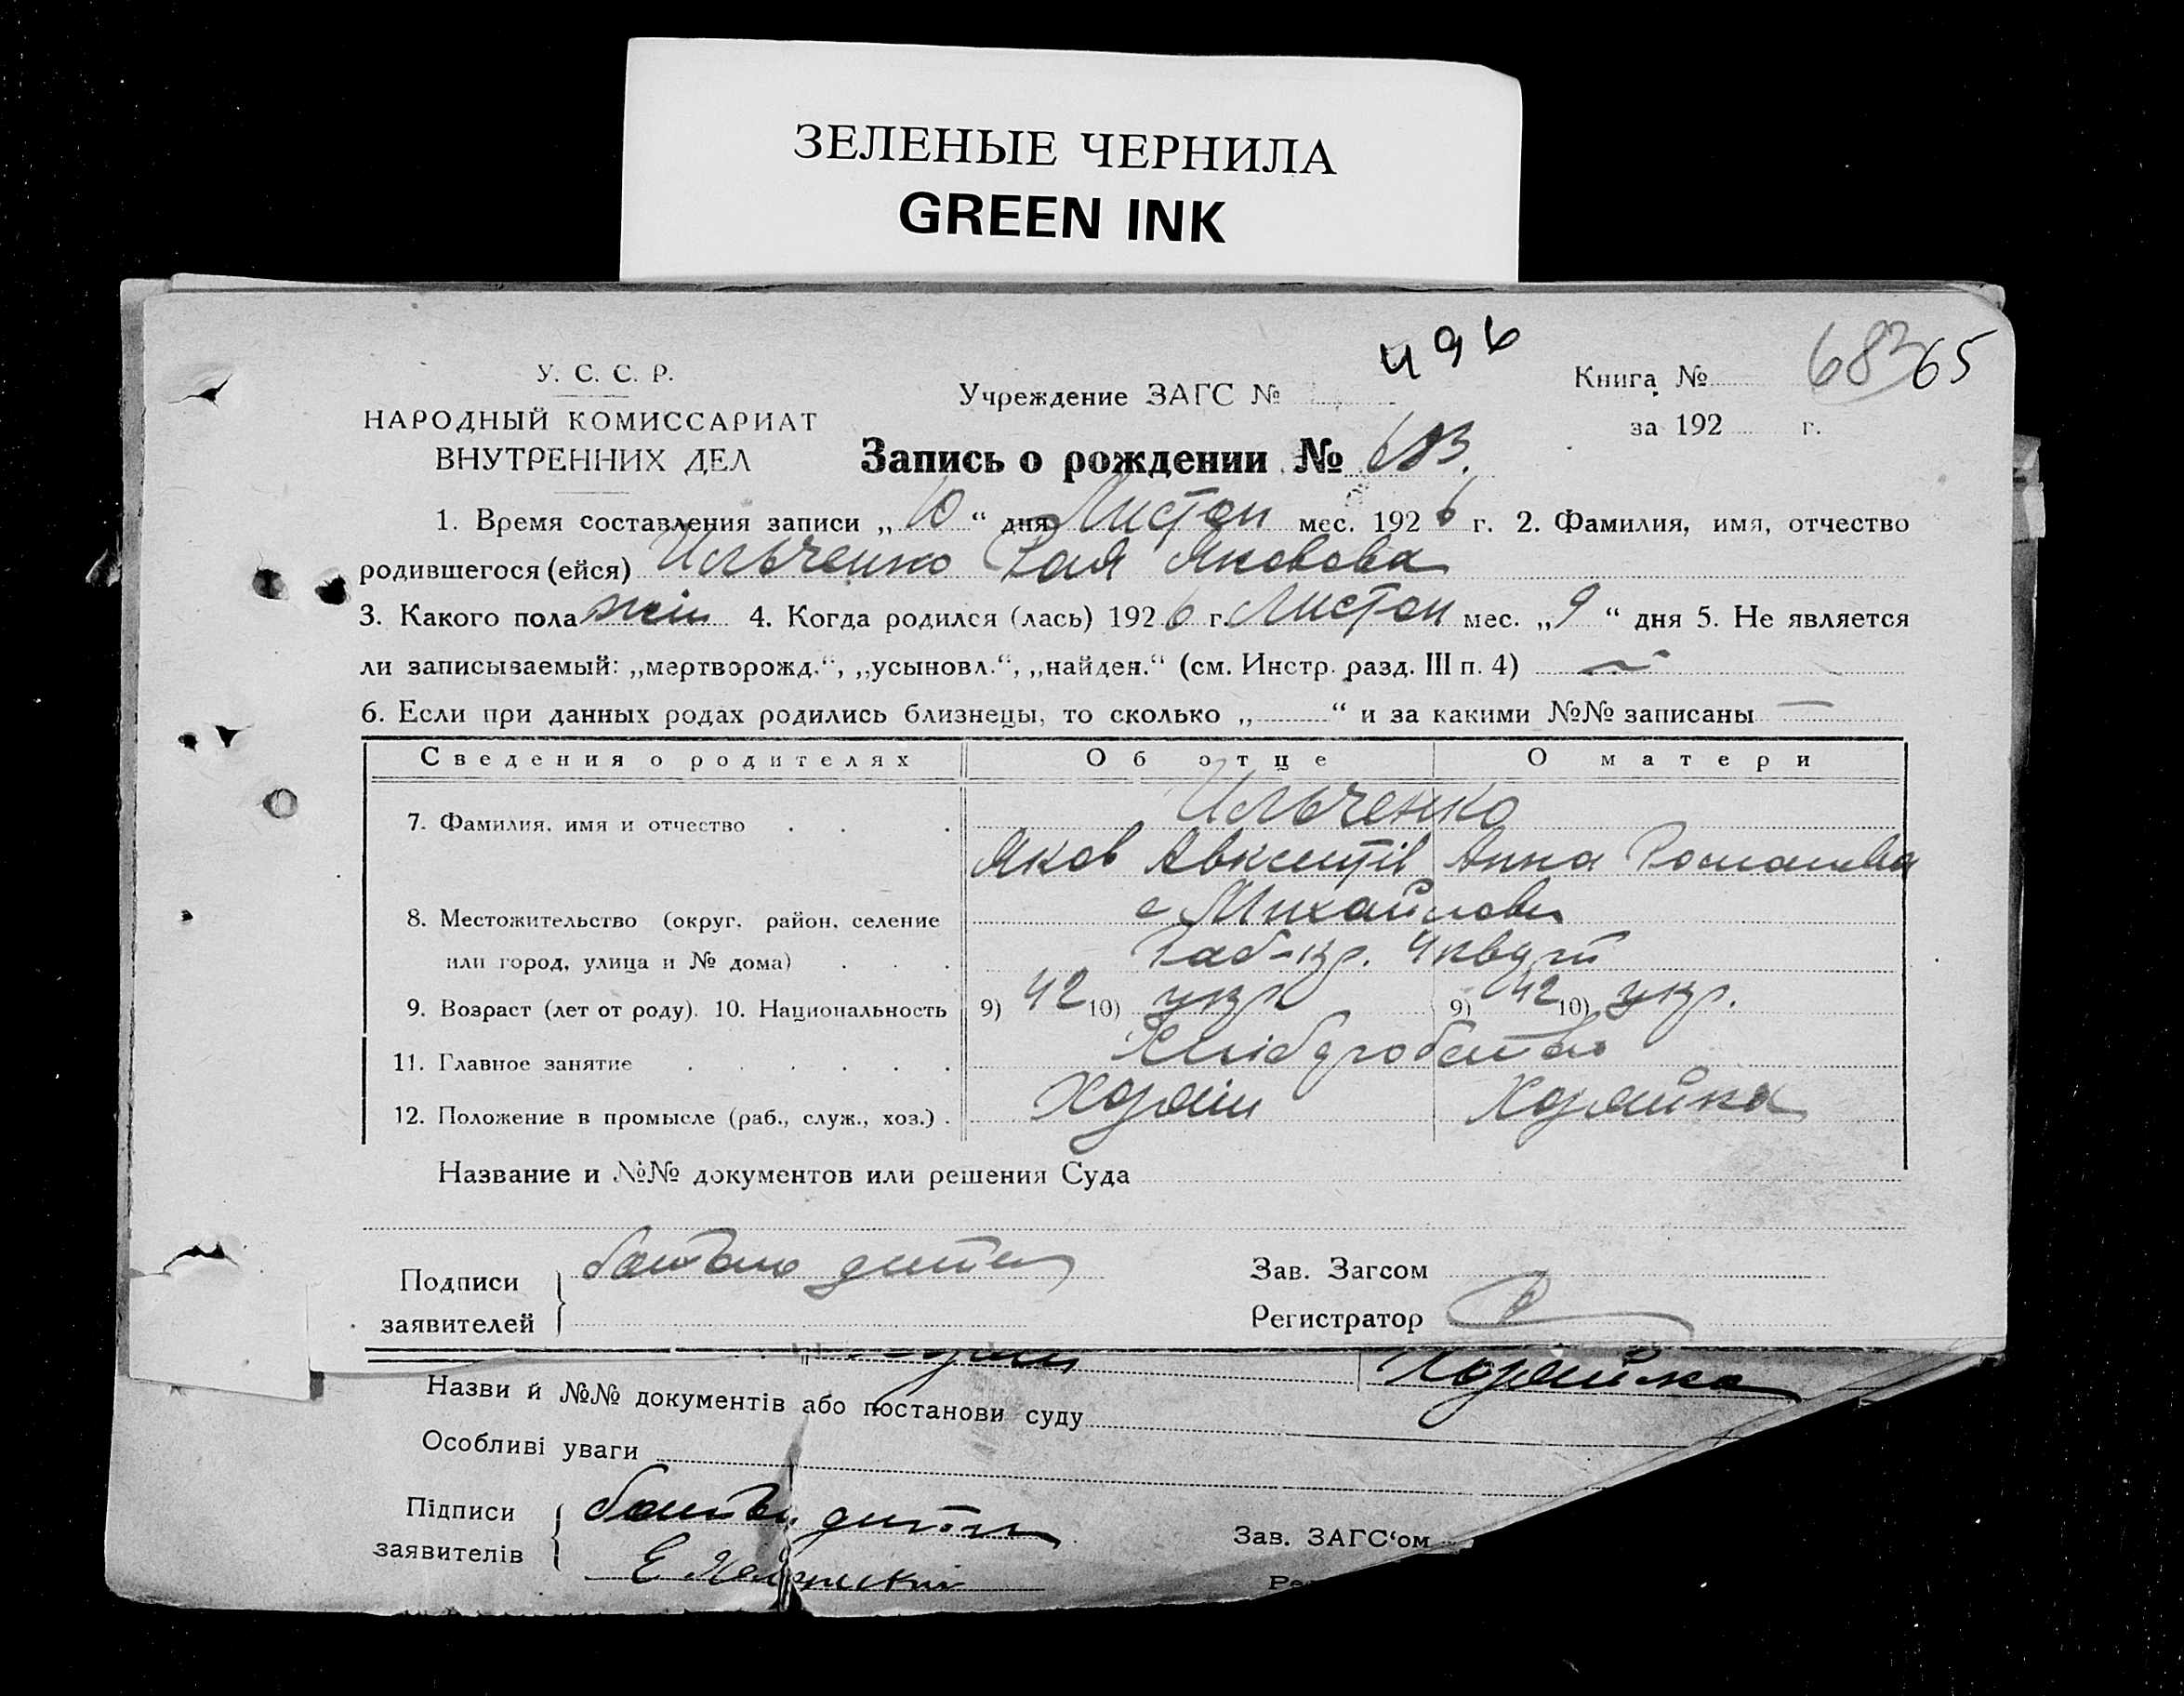 ЗЕЛЕНЫЕ ЧЕРНИЛА
GREEN INK
496
68365
У. С. С. Р.
НАРОДНЫЙ КОМИССАРИАТ
ВНУТРЕННИХ ДЕЛ
Учреждение ЗАГС №
Книга №
за 192 г.
Запись о рождении № 683.
1. Время составления записи „10“ дня Листоп мес. 1926 г. 2. Фамилия, имя, отчество
родившегося (ейся) Ильченко Рая Яковова
3. Какого пола жін 4. Когда родился (лась) 1926 г. Листоп мес. „9“ дня 5. Не является
ли записываемый: „мертворожд.“, „усыновл.“, „найден.“ (см. Инстр. разд. III п. 4) —
6. Если при данных родах родились близнецы, то сколько „ “ и за какими №№ записаны —
Сведения о родителях Об отце О матери
7. Фамилия, имя и отчество . . . Ильченко
Яков Авксентів Анна Романова
8. Местожительство (округ, район, селение с Михайловка
или город, улица и № дома) . . .
9. Возраст (лет от роду). 10. Национальность 9) 42 10) укр 9) 42 10) укр.
11. Главное занятие . . . . . . Хліборобство
12. Положение в промысле (раб., служ., хоз.) . Хозяін Хозяйка
Название и №№ документов или решения Суда
Подписи заявителей батько дитини
Зав. Загсом
Регистратор
Хозяйка
Назви й №№ документів або постанови суду
Особливі уваги
Підписи заявителів батьк дитини
Зав. ЗАГС‘ом